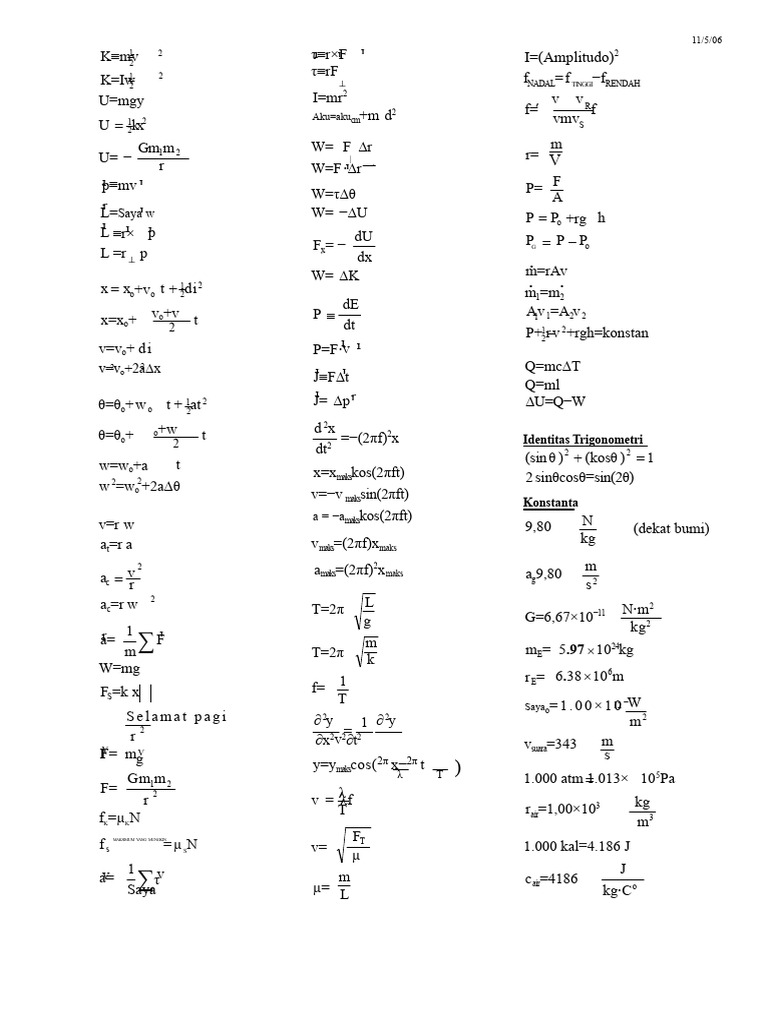 11/5/06
K=½mv²
K=½Iw²
U=mgy
U = ½kx²
U= − Gm₁m₂ / r
p≡mv
L=Saya w
L ≡r× p
L =r⊥ p
x = x₀+v₀ t + ½di²
x=x₀+ v₀+v / 2 t
v=v₀+ di
v²=v₀²+2a∆x
θ=θ₀+w₀ t + ½at²
θ=θ₀+ ₀+w / 2 t
w=w₀+a t
w²=w₀²+2a∆θ
v=r w
aₜ=r a
a꜀ = v² / r
a꜀=r w ²
a= 1 / m ∑ F
W=mg
Fₛ=k |x|
Selamat pagi
r ²
F= mg
F= Gm₁m₂ / r ²
fₖ=μₖN
fₛ MAKSIMUM YANG MUNGKIN =μₛN
a= 1 / Saya ∑ τ
τ≡r×F
τ≡rF⊥
I=mr²
Aku=aku cm+m d²
W= F ∆r
W=F·∆r
W=τ∆θ
W= −∆U
Fₓ= − dU / dx
W= ∆K
P ≡ dE / dt
P=F·v
J≡F∆t
J= ∆p
d²x / dt² =−(2πf)²x
x=x maks kos(2πft)
v=−v maks sin(2πft)
a = −a maks kos(2πft)
v maks=(2πf)x maks
a maks=(2πf)²x maks
T=2π √ L / g
T=2π √ m / k
f= 1 / T
∂²y / ∂x² = 1 / v² ∂²y / ∂t²
y=y maks cos( 2π / λ x− 2π / T t )
v = λ / T = λf
v= √ F_T / μ
μ= m / L
I=(Amplitudo)²
f NADAL= f TINGGI−f RENDAH
f′= v v_R / vmv_S f
r= m / V
P= F / A
P = P₀ +rg h
P_G = P − P₀
ṁ=rAv
ṁ₁=ṁ₂
A₁v₁=A₂v₂
P+½rv²+rgh=konstan
Q=mc∆T
Q=ml
∆U=Q−W
Identitas Trigonometri
(sin θ )² + (kosθ )² = 1
2 sinθcosθ=sin(2θ)
Konstanta
9,80 N / kg (dekat bumi)
a_g9,80 m / s²
G=6,67×10⁻¹¹ N·m² / kg²
m_E= 5.97 × 10²⁴kg
r_E= 6.38 × 10⁶m
Saya₀= 1.00×10 W / m²
v suara=343 m / s
1.000 atm=1.013× 10⁵Pa
r air=1,00×10³ kg / m³
1.000 kal=4.186 J
c air=4186 J / kg·C°